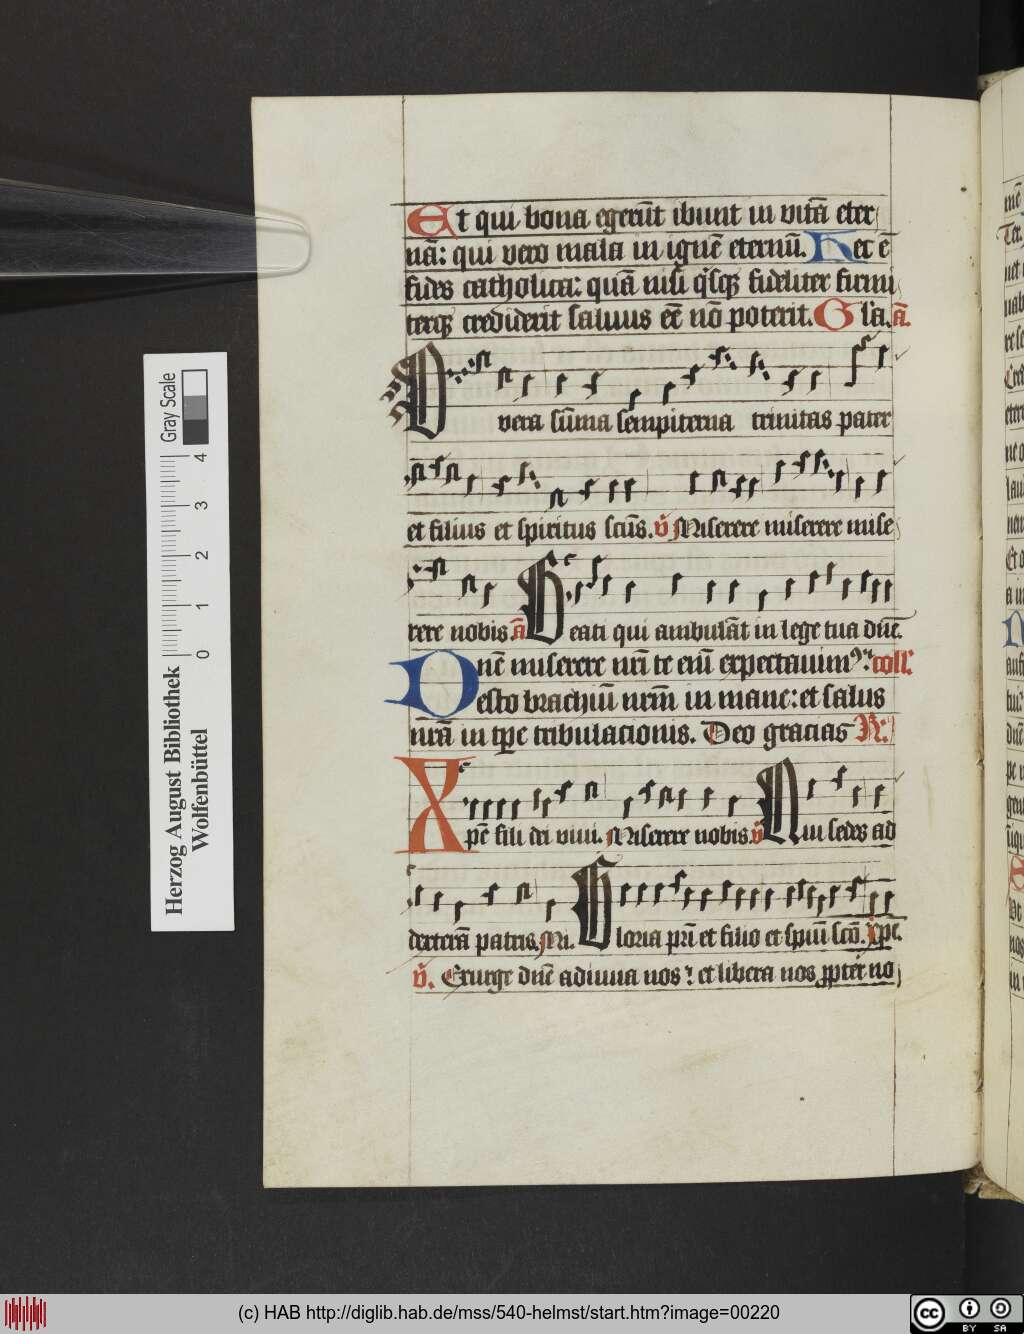 Et qui bona egerūt ibunt in vitā eter
nā: qui vero mala in ignē eternū. Hec ē
fides catholica: quā nisi q'sq₃ fideliter firmi
terq₃ crediderit saluus eē nō poterit. Gl'a. ā.
O vera sūma sempiterna trinitas pater
et filius et spiritus scūs. v̄ Miserere miserere mise
rere nobis. ā Beati qui ambulāt in lege tua dn̄e.
Dn̄e miserere nr̄i te eni̅ expectauim⁹: coll'.
esto brachiū nr̄m in mane: et salus
nr̄a in tp̄e tribulacionis. Deo gracias R:
Xp̄e fili dei viui. Miserere nobis. v̄ Qui sedes ad
dexterā patris. Mi. Gloria pr̄i et filio et spūi scō. Xp̄e.
v̄. Exurge dn̄e adiuua nos: et libera nos ꝓpter no
Herzog August Bibliothek
Wolfenbüttel
0 1 2 3 4
Gray Scale
(c) HAB http://diglib.hab.de/mss/540-helmst/start.htm?image=00220
cc BY SA